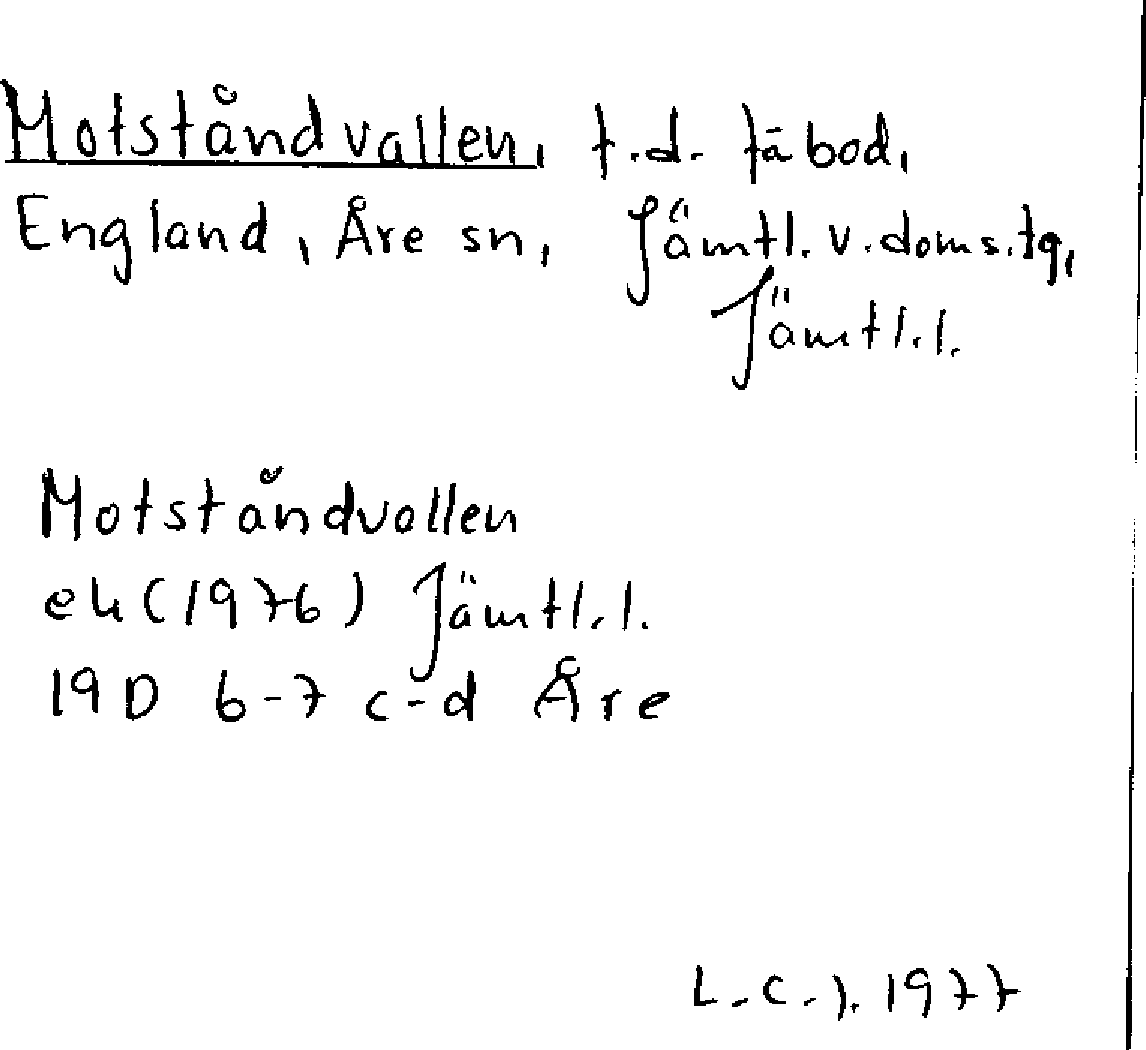 Motståndvallen, f.d. fäbod,
England, Åre sn, Jämtl. v. doms.tg,
Jämtl.l.
Motståndvallen
ek (1976) Jämtl.l.
19D 6-7 c-d Åre
L.C.J. 1977